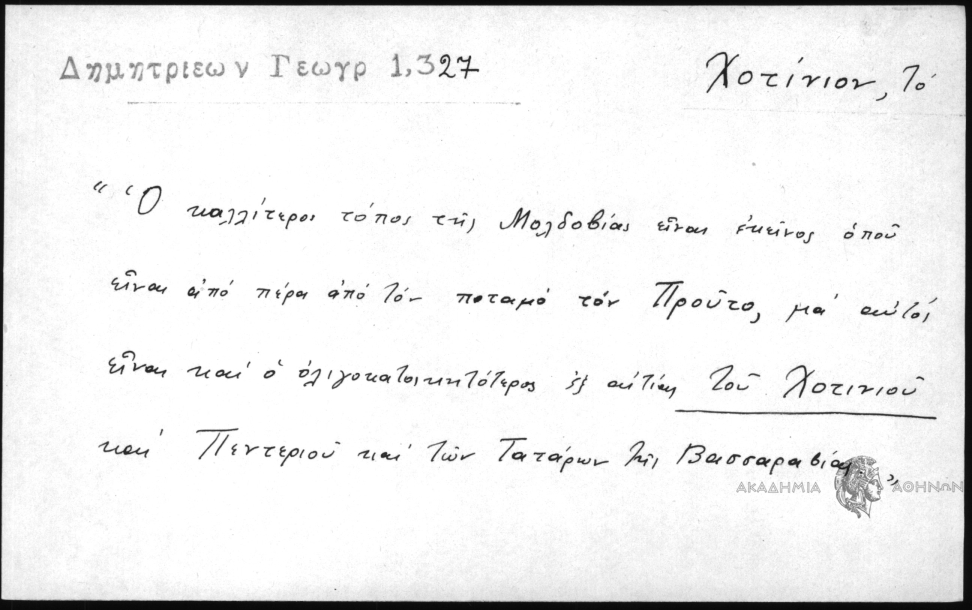 Δημητριεων Γεωγρ 1,327
Χοτίνιον, τό
"Ὁ καλλίτερος τόπος τῆς Μολδοβίας εἶναι ἐκεῖνος ὁποῦ
εἶναι ἀπό πέρα ἀπό τόν ποταμό τόν Προῦτο, μά αὐτός
εἶναι καί ὁ ὀλιγοκατοικητότερος ἐξ αἰτίας τοῦ Χοτινιοῦ
καί Πεντεριοῦ καί τῶν Τατάρων τῆς Βασσαραβίας."
ΑΚΑΔΗΜΙΑ ΑΘΗΝΩΝ